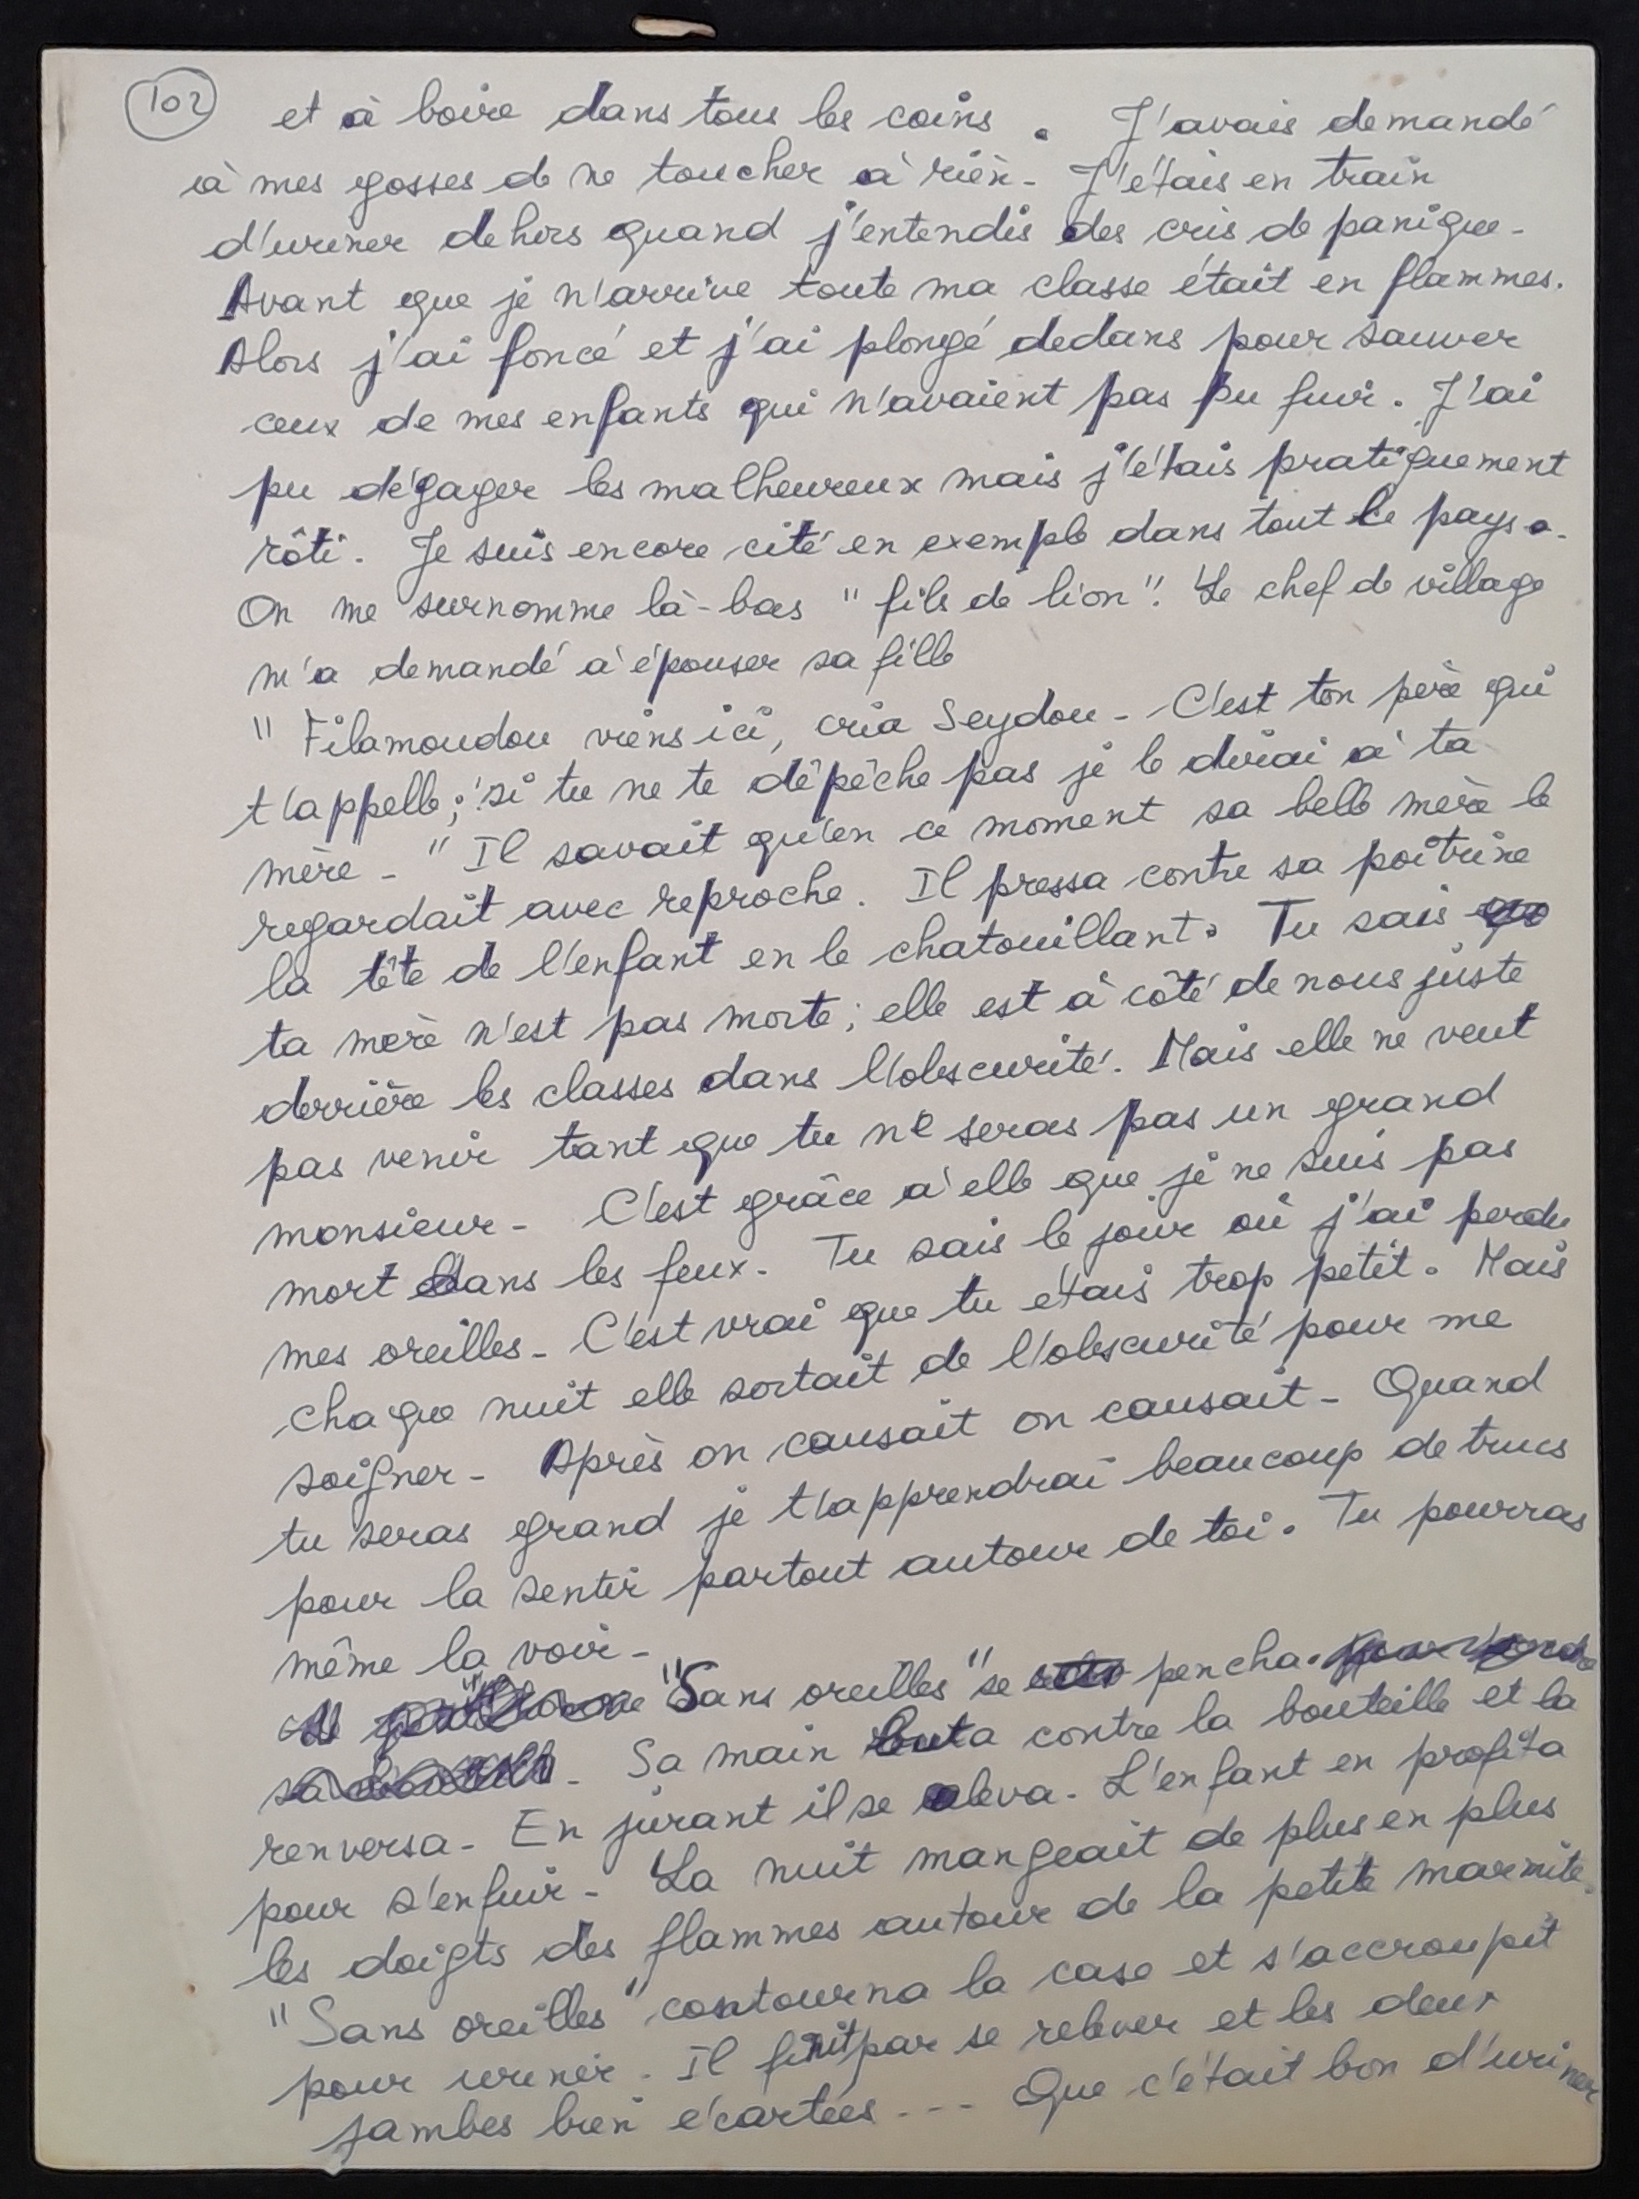 102 et à boire dans tous les coins. J'avais demandé
à mes gosses de ne toucher à rien - J'étais en train
d'uriner dehors quand j'entendis des cris de panique -
Avant que je n'arrive toute ma classe était en flammes.
Alors j'ai foncé et j'ai plongé dedans pour sauver
ceux de mes enfants qui n'avaient pas pu fuir. J'ai
pu dégager les malheureux mais j'étais pratiquement
rôti. Je suis encore cité en exemple dans tout le pays.
On me surnomme là-bas "fils de lion". Le chef de village
m'a demandé à épouser sa fille
"Filamoudou viens ici, cria Seydou - C'est ton père qui
t'appelle; si tu ne te dépêche pas je le dirai à ta
mère - " Il savait qu'en ce moment sa belle mère le
regardait avec reproche. Il pressa contre sa poitrine
la tête de l'enfant en le chatouillant. Tu sais
ta mère n'est pas morte; elle est à côté de nous juste
derrière les classes dans l'obscurité. Mais elle ne veut
pas venir tant que tu ne seras pas un grand
monsieur - C'est grâce à elle que je ne suis pas
mort dans les feux - Tu sais le jour où j'ai perdu
mes oreilles - C'est vrai que tu étais trop petit. Mais
chaque nuit elle sortait de l'obscurité pour me
soigner - Après on causait on causait - Quand
tu seras grand je t'apprendrai beaucoup de trucs
pour la sentir partout autour de toi. Tu pourras
même la voir -
"Sans oreilles" se pencha.
Sa main buta contre la bouteille et la
renversa - En jurant il se leva. L'enfant en profita
pour s'enfuir - La nuit mangeait de plus en plus
les doigts des flammes autour de la petite marmite.
"Sans oreilles" contourna la case et s'accroupit
pour uriner. Il finit par se relever et les deux
jambes bien écartées --- Que c'était bon d'uriner